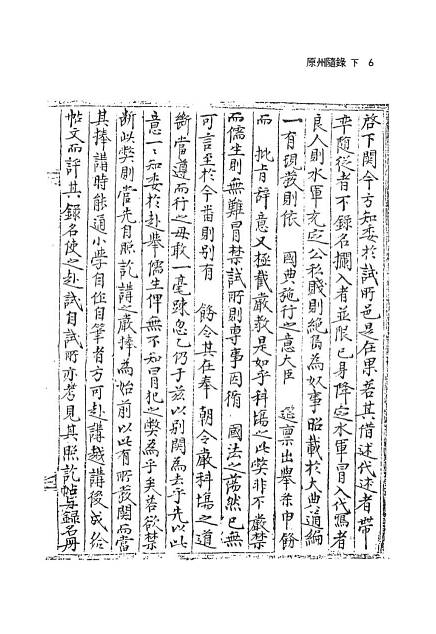 原州隨錄 下 6
啓下關今方知委於試所邑是在果若其借述代述者帶
率隨從者不錄名攔入者並限己身降定水軍冒入代寫者
良人則水軍充定公私賤則絶島為奴事昭載於大典通編
一有現發則依 國典施行之意大臣 筵稟出擧条申飭
而 批旨辞意又極截嚴敎是如乎科場之此獘非不嚴禁
而儒生則無難冒禁試所則專事因循 國法之蕩然已無
可言至於今番則別有 飭令其在奉 朝令嚴科場之道
斷當遵而行之毋敢一毫踈忽乙仍于玆以別關為去乎先以此
意一一知委於赴擧儒生俾無不知冒犯之獘為乎矣若欲禁
斷此獘則當先自照訖講之嚴捧為始前以此有所發關而當
其捧講時能通小學自作自筆者方可赴講越講後成給
帖文而許其錄名使之赴試自試所亦考見其照訖帖與錄名冊